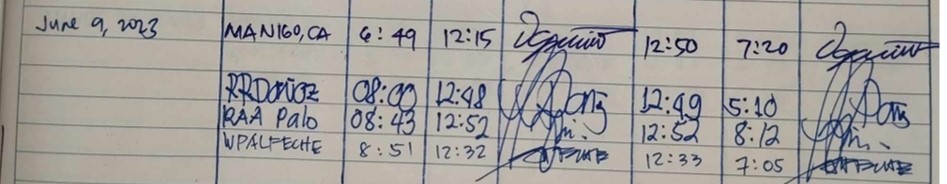 June 9, 2023 MANIGO,CA 6:49 12:15 12:50 7:20
RRDoñoz 08:00 12:48 12:49 5:10
RAA Palo 08:43 12:52 12:52 8:12
WPALFECHE 8:51 12:32 12:33 7:05